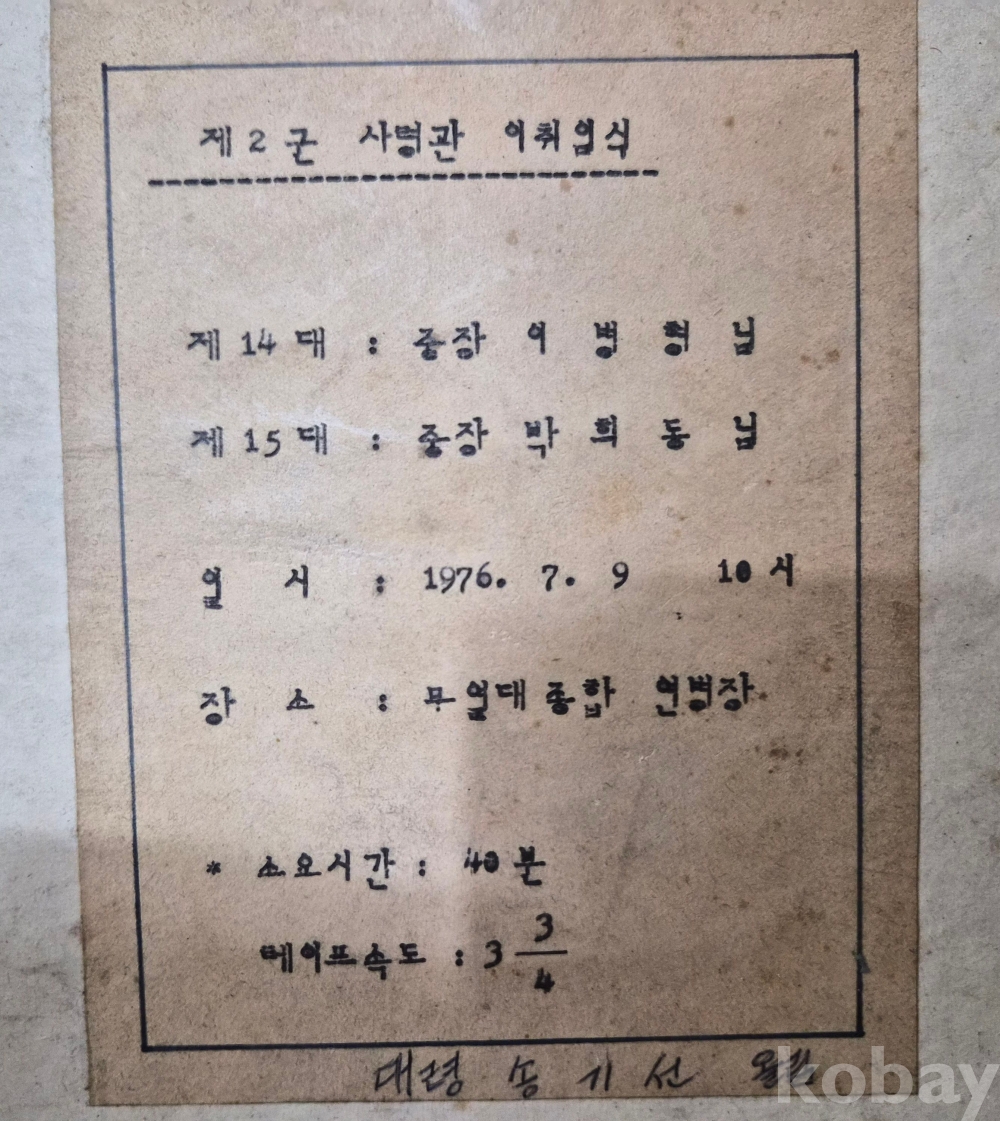 제2군 사령관 이취임식
제14대 : 중장 이 병 형 님
제15대 : 중장 박 희 동 님
일 시 : 1976. 7. 9 10시
장 소 : 무열대종합 연병장
* 소요시간 : 40분
테이프속도 : 3 3/4
대령 송 기 선 올림
kobay